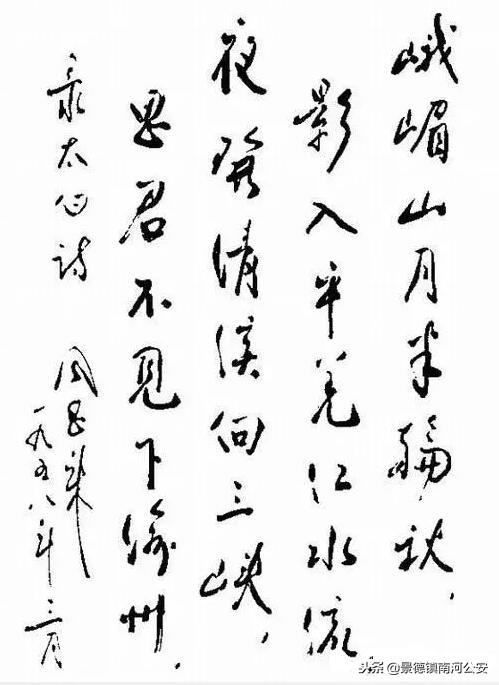 峨嵋山月半輪秋，
影入平羌江水流，
夜發清溪向三峡，
思君不見下渝州．
录太白诗
一九五八年三月
头条@景德镇南河公安